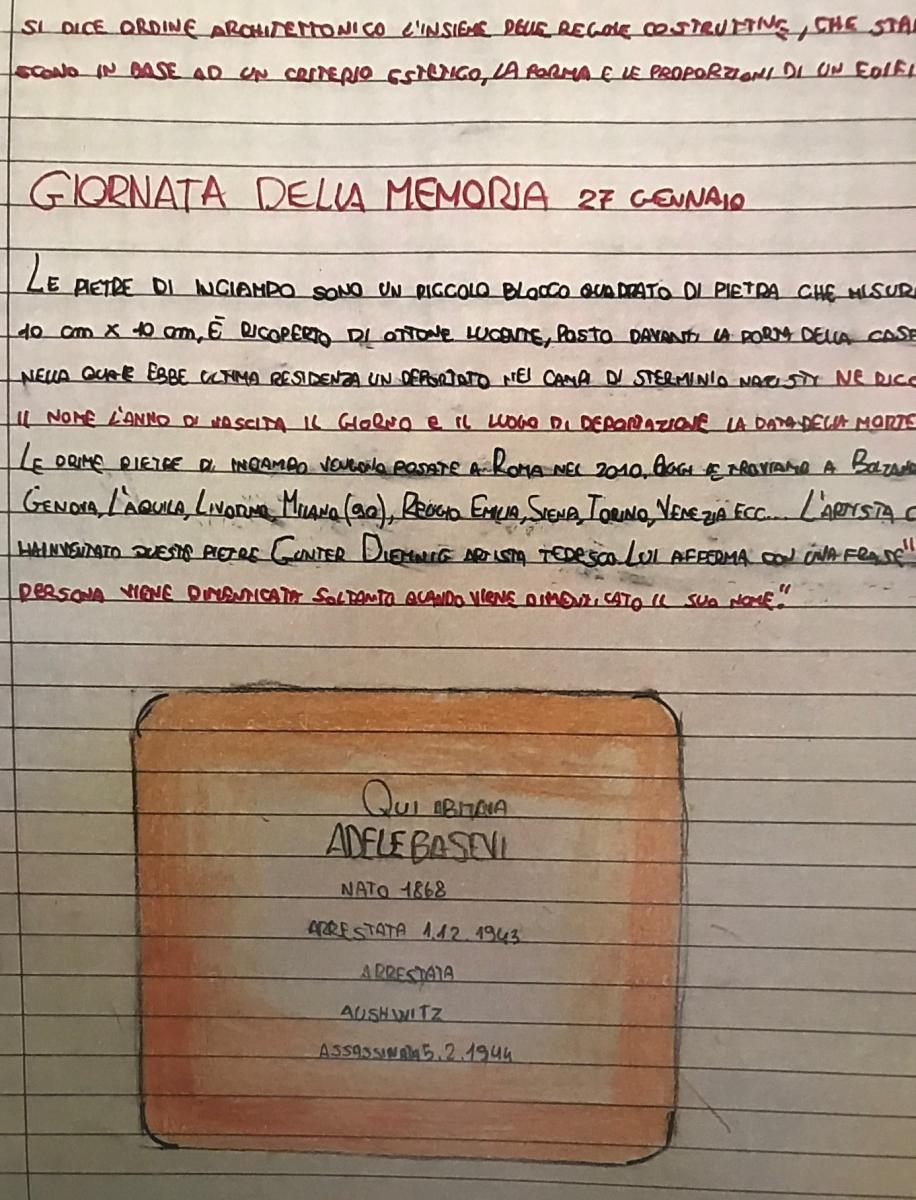 SI DICE ORDINE ARCHITETTONICO L'INSIEME DELLE REGOLE COSTRUTTIVE, CHE STA
SCONO IN BASE AD UN CRITERIO ESTETICO, LA FORMA E LE PROPORZIONI DI UN EDIFI
GIORNATA DELLA MEMORIA 27 GENNAIO
LE PIETRE DI INCIAMPO SONO UN PICCOLO BLOCCO QUADRATO DI PIETRA CHE MISUR
10 cm X 10 cm, È RICOPERTO DI OTTONE LUCENTE, POSTO DAVANTI LA PORTA DELLA CASE
NELLA QUALE EBBE ULTIMA RESIDENZA UN DEPORTATO NEI CAMPI DI STERMINIO NAZISTI NE RICO
IL NOME L'ANNO DI NASCITA IL GIORNO E IL LUOGO DI DEPORTAZIONE LA DATA DELLA MORTE
LE PRIME PIETRE DI INCIAMPO VENGONO POSATE A ROMA NEL 2010. OGGI LE TROVIAMO A BOLZANO
GENOVA, L'AQUILA, LIVORNO, MILANO (90), REGGIO EMILIA, SIENA, TORINO, VENEZIA ECC... L'ARTISTA C
HAINVENTATO QUESTE PIETRE GUNTER ARTISTA TEDESCO. LUI AFFERMA CON UNA FRASE "
PERSONA VIENE DIMENTICATA SOLTANTO QUANDO VIENE DIMENTICATO IL SUO NOME."
QUI ABITAVA
ADELE BASEVI
NATO 1868
ARRESTATA 1.12.1943
ARRESTATA
AUSHWITZ
ASSASSINATA 5.2.1944